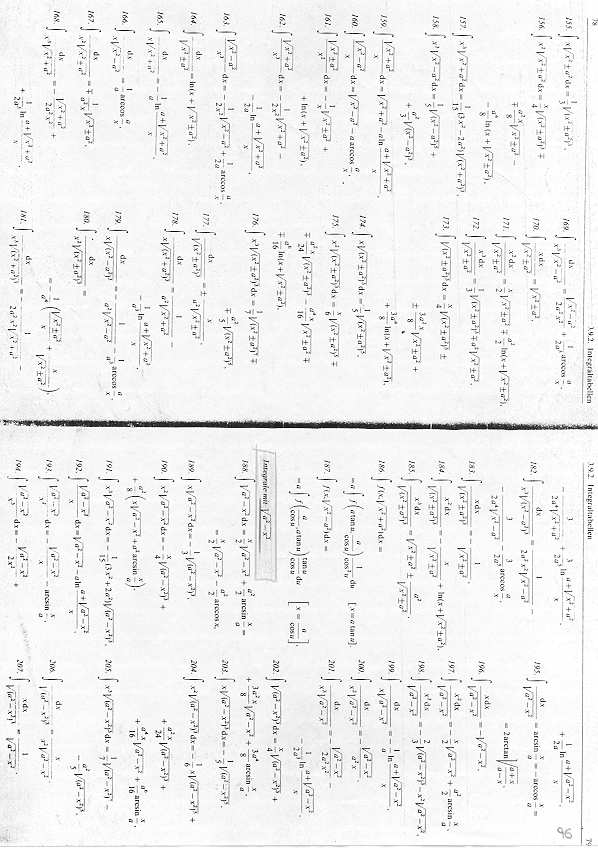 78
3.9.2 Integraltabellen
155. ∫ x√(x²±a²) dx = 1/3 √(x²±a²)³.
156. ∫ x²√(x²±a²) dx = x/4 √(x²±a²)³ ∓
∓ a²x/8 √(x²±a²) −
− a⁴/8 ln(x+√(x²±a²)).
157. ∫ x³√(x²+a²) dx = 1/15 (3x²−2a²)√(x²+a²)³.
158. ∫ x³√(x²−a²) dx = 1/5 √(x²−a²)⁵ +
+ a²/3 √(x²−a²)³.
159. ∫ √(x²+a²)/x dx = √(x²+a²) − a ln (a+√(x²+a²))/x.
160. ∫ √(x²−a²)/x dx = √(x²−a²) − a arccos a/x.
161. ∫ √(x²±a²)/x² dx = − √(x²±a²)/x +
+ ln(x+√(x²±a²)).
162. ∫ √(x²+a²)/x³ dx = − √(x²+a²)/2x² −
− 1/2a ln (a+√(x²+a²))/x.
163. ∫ √(x²−a²)/x³ dx = − √(x²−a²)/2x² + 1/2a arccos a/x.
164. ∫ dx/√(x²±a²) = ln(x+√(x²±a²)).
165. ∫ dx/x√(x²+a²) = − 1/a ln (a+√(x²+a²))/x.
166. ∫ dx/x√(x²−a²) = 1/a arccos a/x.
167. ∫ dx/x²√(x²±a²) = ∓ 1/a²x √(x²±a²).
168. ∫ dx/x³√(x²+a²) = − √(x²+a²)/2a²x² +
+ 1/2a³ ln (a+√(x²+a²))/x.
169. ∫ dx/x³√(x²−a²) = √(x²−a²)/2a²x² + 1/2a³ arccos a/x.
170. ∫ x dx/√(x²±a²) = √(x²±a²).
171. ∫ x² dx/√(x²±a²) = x/2 √(x²±a²) ∓ a²/2 ln(x+√(x²±a²)).
172. ∫ x³ dx/√(x²±a²) = 1/3 √(x²±a²)³ ∓ a²√(x²±a²).
173. ∫ √(x²±a²)³ dx = x/4 √(x²±a²)³ ±
± 3a²x/8 √(x²±a²) +
+ 3a⁴/8 ln(x+√(x²±a²)).
174. ∫ x√(x²±a²)³ dx = 1/5 √(x²±a²)⁵.
175. ∫ x²√(x²±a²)³ dx = x/6 √(x²±a²)⁵ ∓
∓ a²x/24 √(x²±a²)³ − a⁴x/16 √(x²±a²) ∓
∓ a⁶/16 ln(x+√(x²±a²)).
176. ∫ x³√(x²±a²)³ dx = 1/7 √(x²±a²)⁷ ∓
∓ a²/5 √(x²±a²)⁵.
177. ∫ dx/√(x²±a²)³ = ± x/a²√(x²±a²).
178. ∫ dx/x√(x²+a²)³ = 1/a²√(x²+a²) −
− 1/a³ ln (a+√(x²+a²))/x.
179. ∫ dx/x√(x²−a²)³ = − 1/a²√(x²−a²) − 1/a³ arccos a/x.
180. ∫ dx/x²√(x²±a²)³ =
= − 1/a⁴ (√(x²±a²)/x + x/√(x²±a²)).
181. ∫ dx/x³√(x²+a²)³ = − 1/2a²x²√(x²+a²) −
3.9.2 Integraltabellen
79
96
− 3/2a⁴√(x²+a²) + 3/2a⁵ ln (a+√(x²+a²))/x.
182. ∫ dx/x³√(x²−a²)³ = 1/2a²x²√(x²−a²) −
− 3/2a⁴√(x²−a²) − 3/2a⁵ arccos a/x.
183. ∫ x dx/√(x²±a²)³ = − 1/√(x²±a²).
184. ∫ x² dx/√(x²±a²)³ = − x/√(x²±a²) + ln(x+√(x²±a²)).
185. ∫ x³ dx/√(x²±a²)³ = √(x²±a²) ± a²/√(x²±a²).
186. ∫ f(x;√(x²+a²)) dx =
= a ∫ f(a tan u, a/cos u) 1/cos² u du [x = a tan u]
187. ∫ f(x;√(x²−a²)) dx =
= a ∫ f(a/cos u, a tan u) tan u/cos u du [x = a/cos u]
Integrale mit √(a²−x²)
188. ∫ √(a²−x²) dx = x/2 √(a²−x²) + a²/2 arcsin x/a =
= x/2 √(a²−x²) − a²/2 arccos x/a.
189. ∫ x√(a²−x²) dx = − 1/3 √(a²−x²)³.
190. ∫ x²√(a²−x²) dx = − x/4 √(a²−x²)³ +
+ a²/8 (x√(a²−x²) + a² arcsin x/a)
191. ∫ x³√(a²−x²) dx = − 1/15 (3x²+2a²)√(a²−x²)³.
192. ∫ √(a²−x²)/x dx = √(a²−x²) − a ln (a+√(a²−x²))/x
193. ∫ √(a²−x²)/x² dx = − √(a²−x²)/x − arcsin x/a
194. ∫ √(a²−x²)/x³ dx = − √(a²−x²)/2x² +
+ 1/2a ln (a+√(a²−x²))/x.
195. ∫ dx/√(a²−x²) = arcsin x/a = − arccos x/a =
= 2 arctan √((a+x)/(a−x))
196. ∫ x dx/√(a²−x²) = − √(a²−x²).
197. ∫ x² dx/√(a²−x²) = − x/2 √(a²−x²) + a²/2 arcsin x/a
198. ∫ x³ dx/√(a²−x²) = 1/3 √(a²−x²)³ − a²√(a²−x²).
199. ∫ dx/x√(a²−x²) = − 1/a ln (a+√(a²−x²))/x.
200. ∫ dx/x²√(a²−x²) = − √(a²−x²)/a²x.
201. ∫ dx/x³√(a²−x²) = − √(a²−x²)/2a²x² −
− 1/2a³ ln (a+√(a²−x²))/x.
202. ∫ √(a²−x²)³ dx = x/4 √(a²−x²)³ +
+ 3a²x/8 √(a²−x²) + 3a⁴/8 arcsin x/a
203. ∫ x√(a²−x²)³ dx = − 1/5 √(a²−x²)⁵
204. ∫ x²√(a²−x²)³ dx = − x/6 √(a²−x²)⁵ +
+ a²x/24 √(a²−x²)³ +
+ a⁴x/16 √(a²−x²) + a⁶/16 arcsin x/a
205. ∫ x³√(a²−x²)³ dx = 1/7 √(a²−x²)⁷ −
− a²/5 √(a²−x²)⁵.
206. ∫ dx/√(a²−x²)³ = x/a²√(a²−x²).
207. ∫ x dx/√(a²−x²)³ = 1/√(a²−x²).